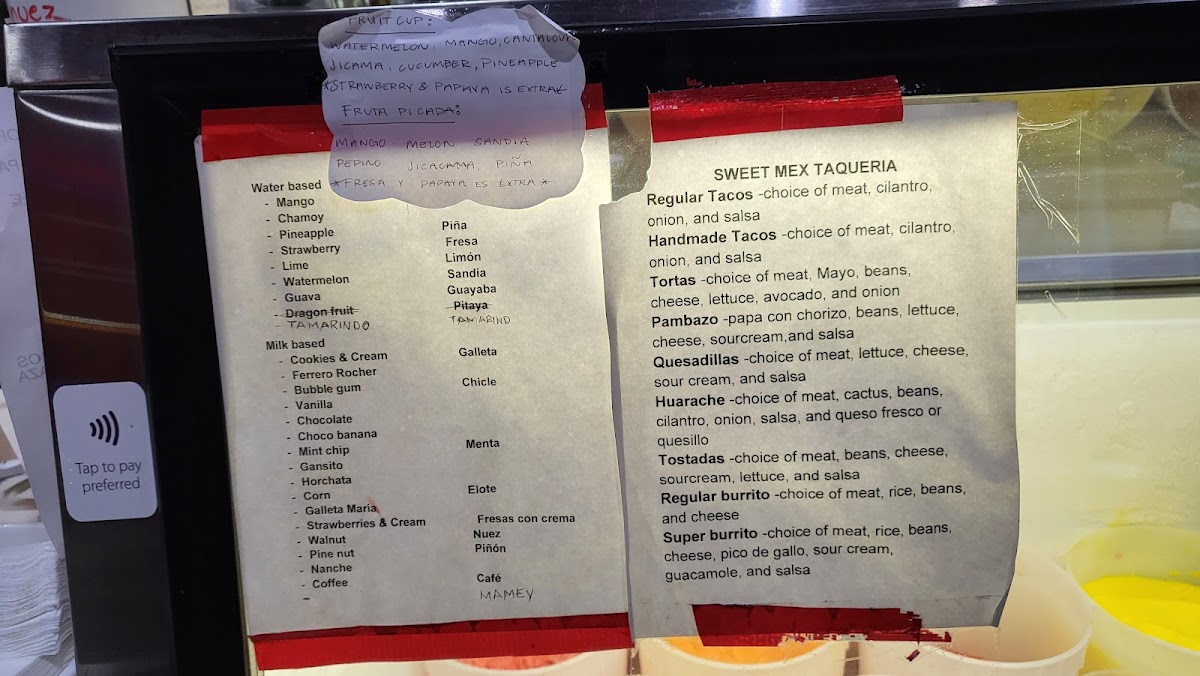 nuez
FRUIT CUP:
WATERMELON, MANGO, CANTALOUPE
JICAMA, CUCUMBER, PINEAPPLE
*STRAWBERRY & PAPAYA IS EXTRA*
FRUTA PICADA:
MANGO MELON SANDIA
PEPINO JICACAMA, PIÑA
*FRESA Y PAPAYA ES EXTRA*
Water based
- Mango
- Chamoy
- Pineapple Piña
- Strawberry Fresa
- Lime Limón
- Watermelon Sandía
- Guava Guayaba
- Dragon fruit Pitaya
- TAMARINDO TAMARIND
Milk based
- Cookies & Cream Galleta
- Ferrero Rocher
- Bubble gum Chicle
- Vanilla
- Chocolate
- Choco banana
- Mint chip Menta
- Gansito
- Horchata
- Corn Elote
- Galleta Maria
- Strawberries & Cream Fresas con crema
- Walnut Nuez
- Pine nut Piñón
- Nanche
- Coffee Café
- MAMEY
SWEET MEX TAQUERIA
Regular Tacos -choice of meat, cilantro,
onion, and salsa
Handmade Tacos -choice of meat, cilantro,
onion, and salsa
Tortas -choice of meat, Mayo, beans,
cheese, lettuce, avocado, and onion
Pambazo -papa con chorizo, beans, lettuce,
cheese, sourcream,and salsa
Quesadillas -choice of meat, lettuce, cheese,
sour cream, and salsa
Huarache -choice of meat, cactus, beans,
cilantro, onion, salsa, and queso fresco or
quesillo
Tostadas -choice of meat, beans, cheese,
sourcream, lettuce, and salsa
Regular burrito -choice of meat, rice, beans,
and cheese
Super burrito -choice of meat, rice, beans,
cheese, pico de gallo, sour cream,
guacamole, and salsa
Tap to pay
preferred